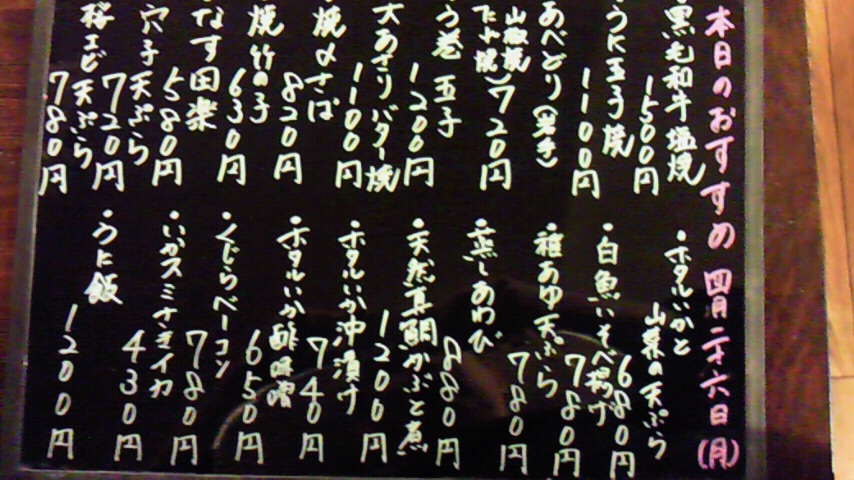 本日のおすすめ 四月二十六日(月)
・黒毛和牛塩焼
1500円
・うに玉子焼
1100円
あべどり(岩手)
山椒焼
たれ焼)720円
う巻玉子
1200円
大あさりバター焼
1100円
・焼〆さば
820円
焼竹の子
630円
なす田楽
580円
穴子天ぷら
720円
桜エビ天ぷら
780円
・ホタルいかと
山菜の天ぷら
680円
・白魚いそべ揚げ
780円
・稚あゆ天ぷら
780円
・蒸しあわび
880円
・天然真鯛かぶと煮
1200円
・ホタルいか沖漬け
740円
・ホタルいか酢味噌
650円
・くじらベーコン
780円
・いかスミさきイカ
430円
・うに飯
1200円